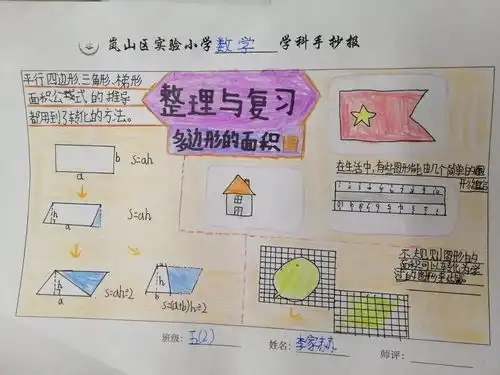 岚山区实验小学数学 学科手抄报
平行四边形、三角形、梯形
面积公式的推导
都用到了转化的方法。
整理与复习
多边形的面积
b
S=ah
a
h
S=ah
a
h
a
S=ah÷2
b
h
a
S=(a+b)h÷2
在生活中,有些图形能由几个简单的图
形组合
不规则图形的
面积可以转化为学
过的图形来估算。
班级: 五(2) 姓名: 李家 师评: